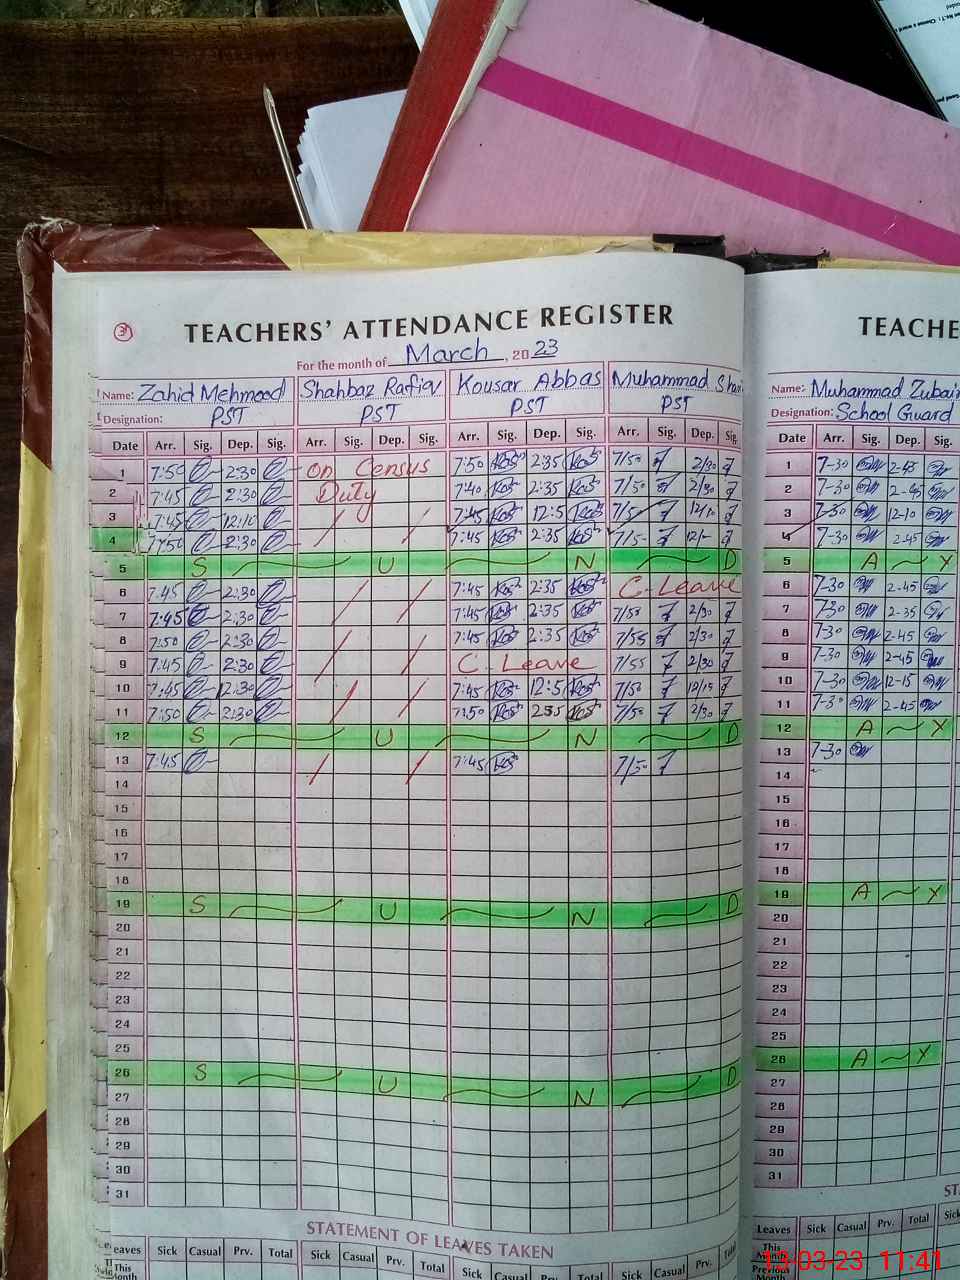 TEACHERS' ATTENDANCE REGISTER
For the month of March, 2023
Name: Zahid Mehmood Shahbaz Rafiq Kousar Abbas Muhammad
Designation: PST PST PST PST
Date Arr. Sig. Dep. Sig. Arr. Sig. Dep. Sig. Arr. Sig. Dep. Sig. Arr. Sig. Dep. Sig.
1 7:50 2:30 on Census 7:50 2:35 7/50 2/30
2 7:45 2:30 Duty 7:40 2:35 7/50 2/30
3 7:45 12:10 7:45 12:5 7/5
4 7:50 2:30 7:45 2:35 7/5-
5 S U N D
6 7:45 2:30 7:45 2:35 C-Leave
7 7:45 2:30 7:45 2:35 7/50 2/30
8 7:50 2:30 7:45 2:35 7/55 2/30
9 7:45 2:30 C-Leave 7/55 2/30
10 7:45 12:30 7:45 12:5 7/50 12/15
11 7:50 2:30 7:50 2:35 7/50 2/30
12 S U N D
13 7:45 7:45 7/50
14
15
16
17
18
19 S U N D
20
21
22
23
24
25
26 S U N D
27
28
29
30
31
STATEMENT OF LEAVES TAKEN
Leaves Sick Casual Prv. Total Sick Casual Prv. Total Sick Casual Prv. Total Sick Casual Prv. Total
This Month
TEACHE
Name: Muhammad Zubair
Designation: School Guard
Date Arr. Sig. Dep. Sig.
1 7-30 2-45
2 7-30 2-45
3 7-30 12-10
4 7-30 2-45
5 A X
6 7-30 2-45
7 7-30 2-35
8 7-30 2-45
9 7-30 2-45
10 7-30 12-15
11 7-30 2-45
12 A X
13 7-30
14
15
16
17
18
19 A X
20
21
22
23
24
25
26 A X
27
28
29
30
31
STA
Leaves Sick Casual Prv. Total Sick
This Month
Previous Month
13-03-23 11:41